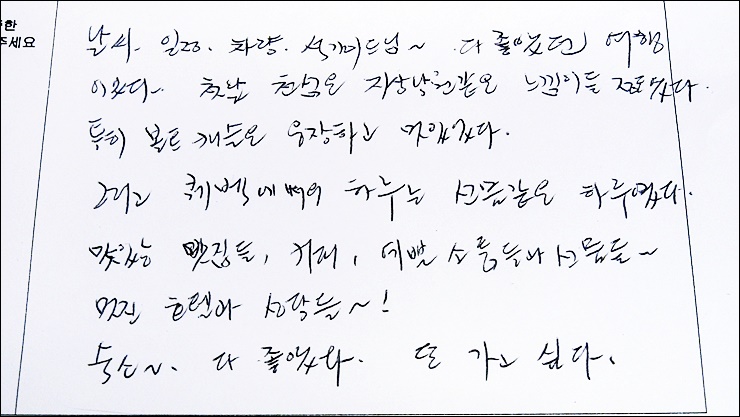 한
주세요
날씨. 일정. 차량. 석가이드님~ 다 좋았던 여행
이었다~ 첫날 천섬은 지상낙원같은 느낌이들 정도였다.
특히 볼트 캐슬은 웅장하고 멋있었다.
그리고 퀘벡에서의 하루는 선물같은 하루였다.
맛있는 맛집들, 커피, 예쁜 소품들과 선물들~
멋진 호텔과 식당들~!
숙소~. 다 좋았다. 또 가고 싶다.